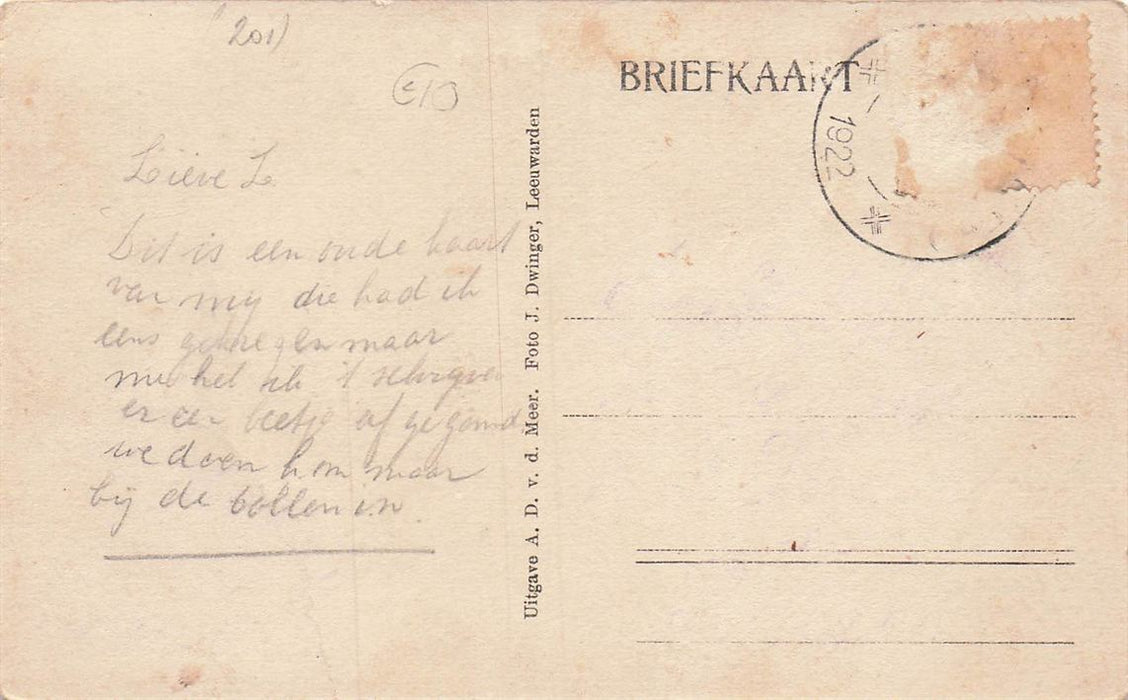 201)
€10
BRIEFKAART
1922
Lieve L
Dit is een oude kaart
van mij die had ik
eens gekregen maar
nu heb ik 't schrijven
er een beetje af gegomd
we doen hem maar
bij de bollen in
Uitgave A. D. v. d. Meer. Foto J. Dwinger, Leeuwarden